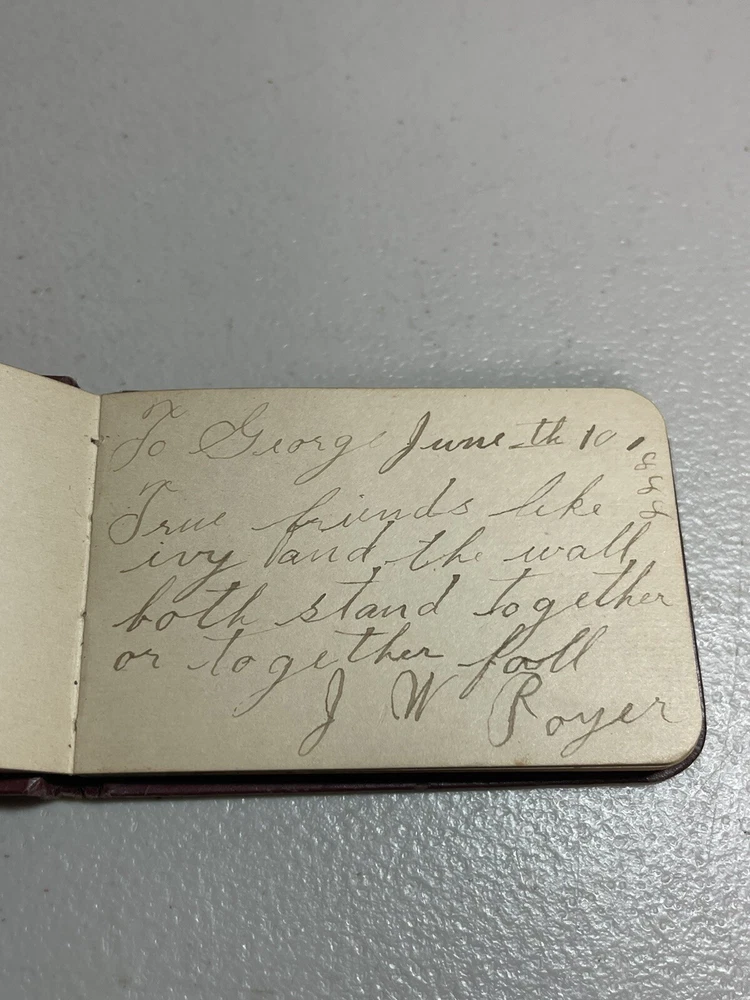 To George June th 10 1888
True friends like
ivy and the wall
both stand together
or together fall
J W Royer